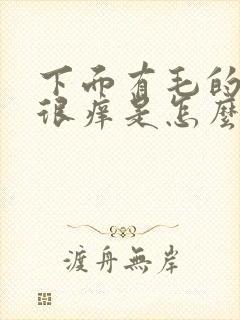 下而有毛的
很痒是怎麽
渡舟無岸